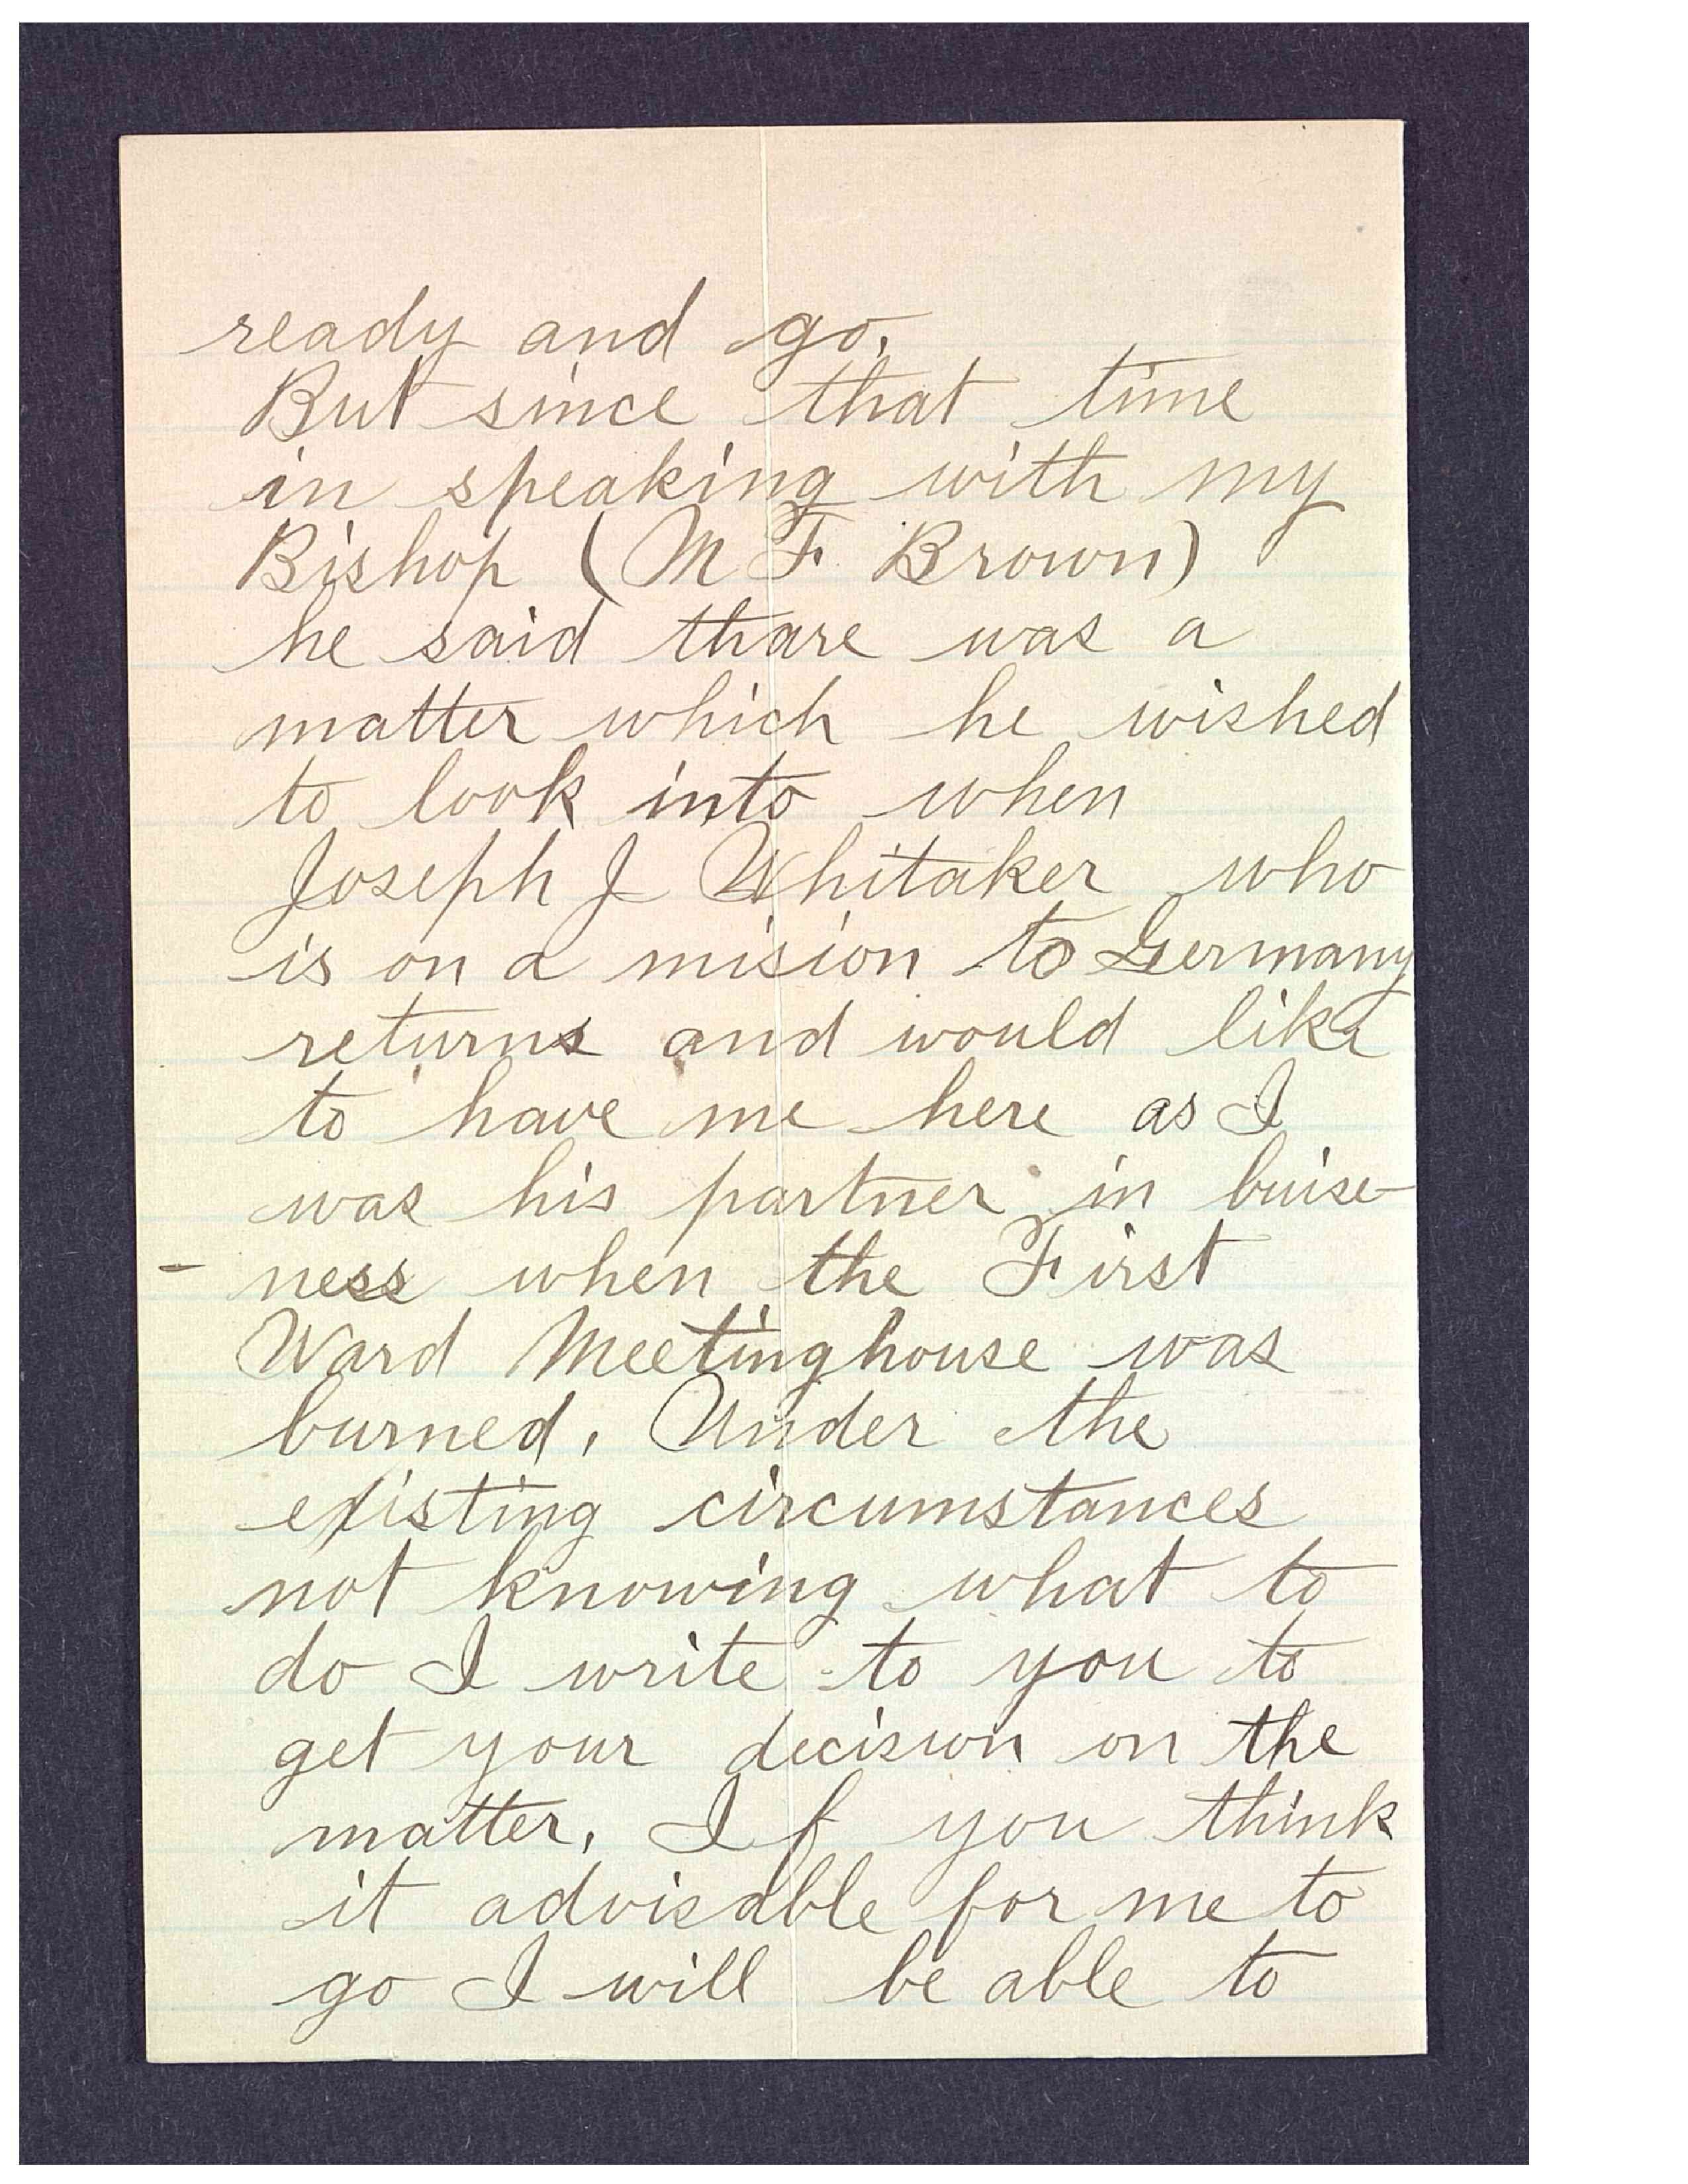 ready and go.
But since that time
in speaking with my
Bishop (M F. Brown)
he said thare was a
matter which he wished
to look into when
Joseph J Whitaker who
is on a mision to Germany
returns and would like
to have me here as I
was his partner in buise-
- ness when the First
Ward Meetinghouse was
burned. Under the
existing circumstances
not knowing what to
do I write to you to
get your decision on the
matter. If you think
it advisable for me to
go I will be able to